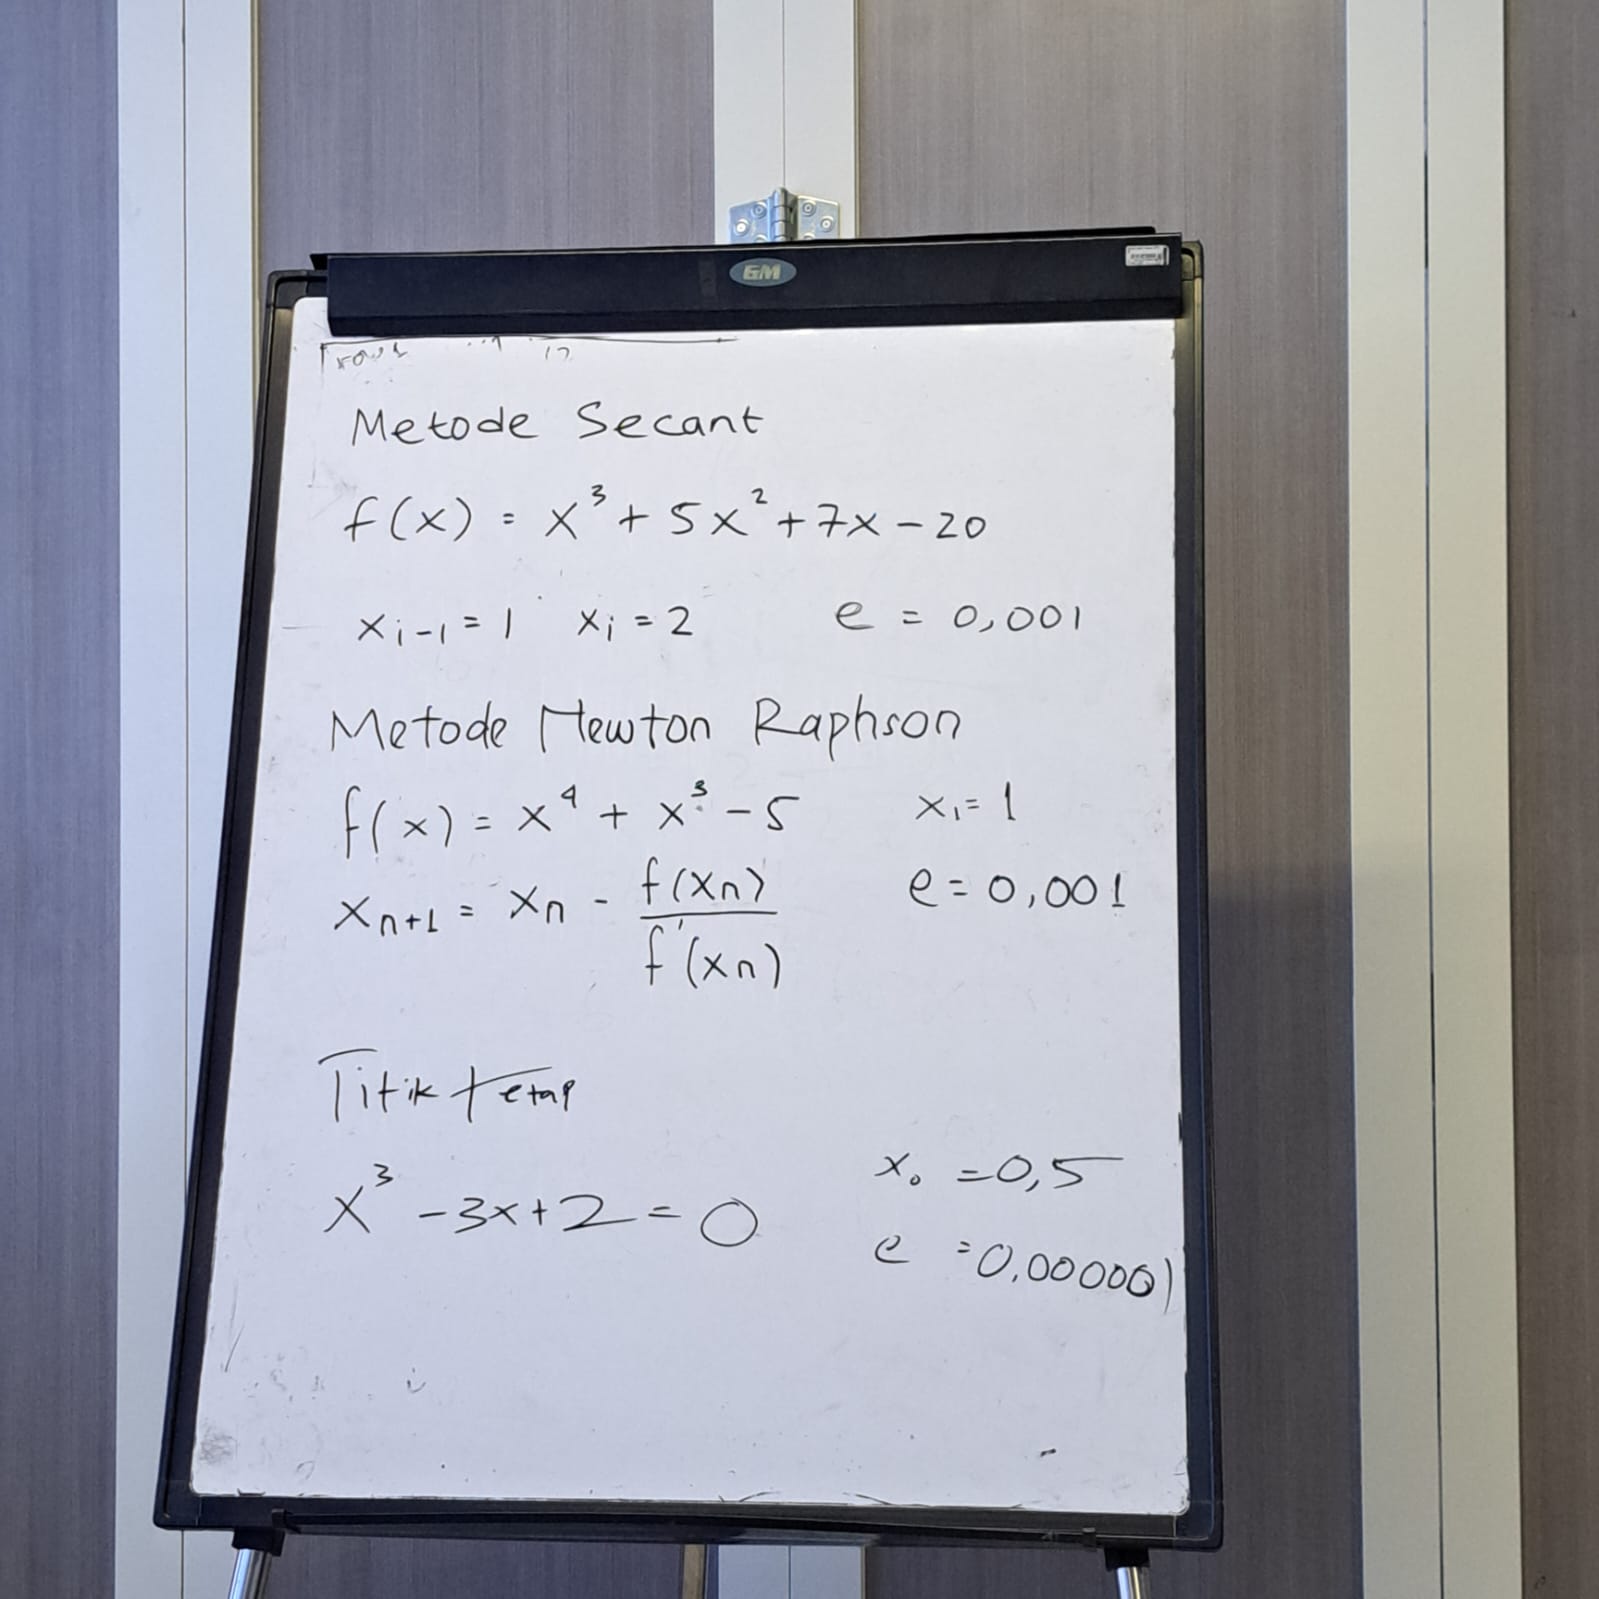 GM
Metode Secant
f(x) = x³ + 5x² + 7x - 20
xᵢ₋₁ = 1 xᵢ = 2 e = 0,001
Metode Newton Raphson
f(x) = x⁴ + x³ - 5 x₁ = 1
xₙ₊₁ = xₙ - f(xₙ) / f'(xₙ) e = 0,001
Titik tetap
x³ - 3x + 2 = 0 x₀ = 0,5
e = 0,000001